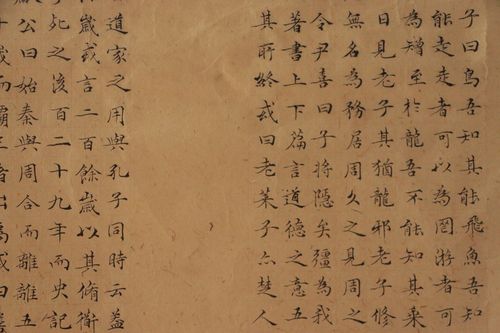 子曰鳥吾知其能飛魚吾知
能走走者可以為罔游者可
為矰至於龍吾不能知其乘
日見老子其猶龍邪老子修
無名為務居周久之見周之
令尹喜曰子將隱矣彊為我
著書上下篇言道德之意五
其所終或曰老萊子亦楚人
道家之用與孔子同時云蓋
歲或言二百餘歲以其脩
子死之後百二十九年而史記
公曰始秦與周合而離離五
十歲而霸王者出焉或曰